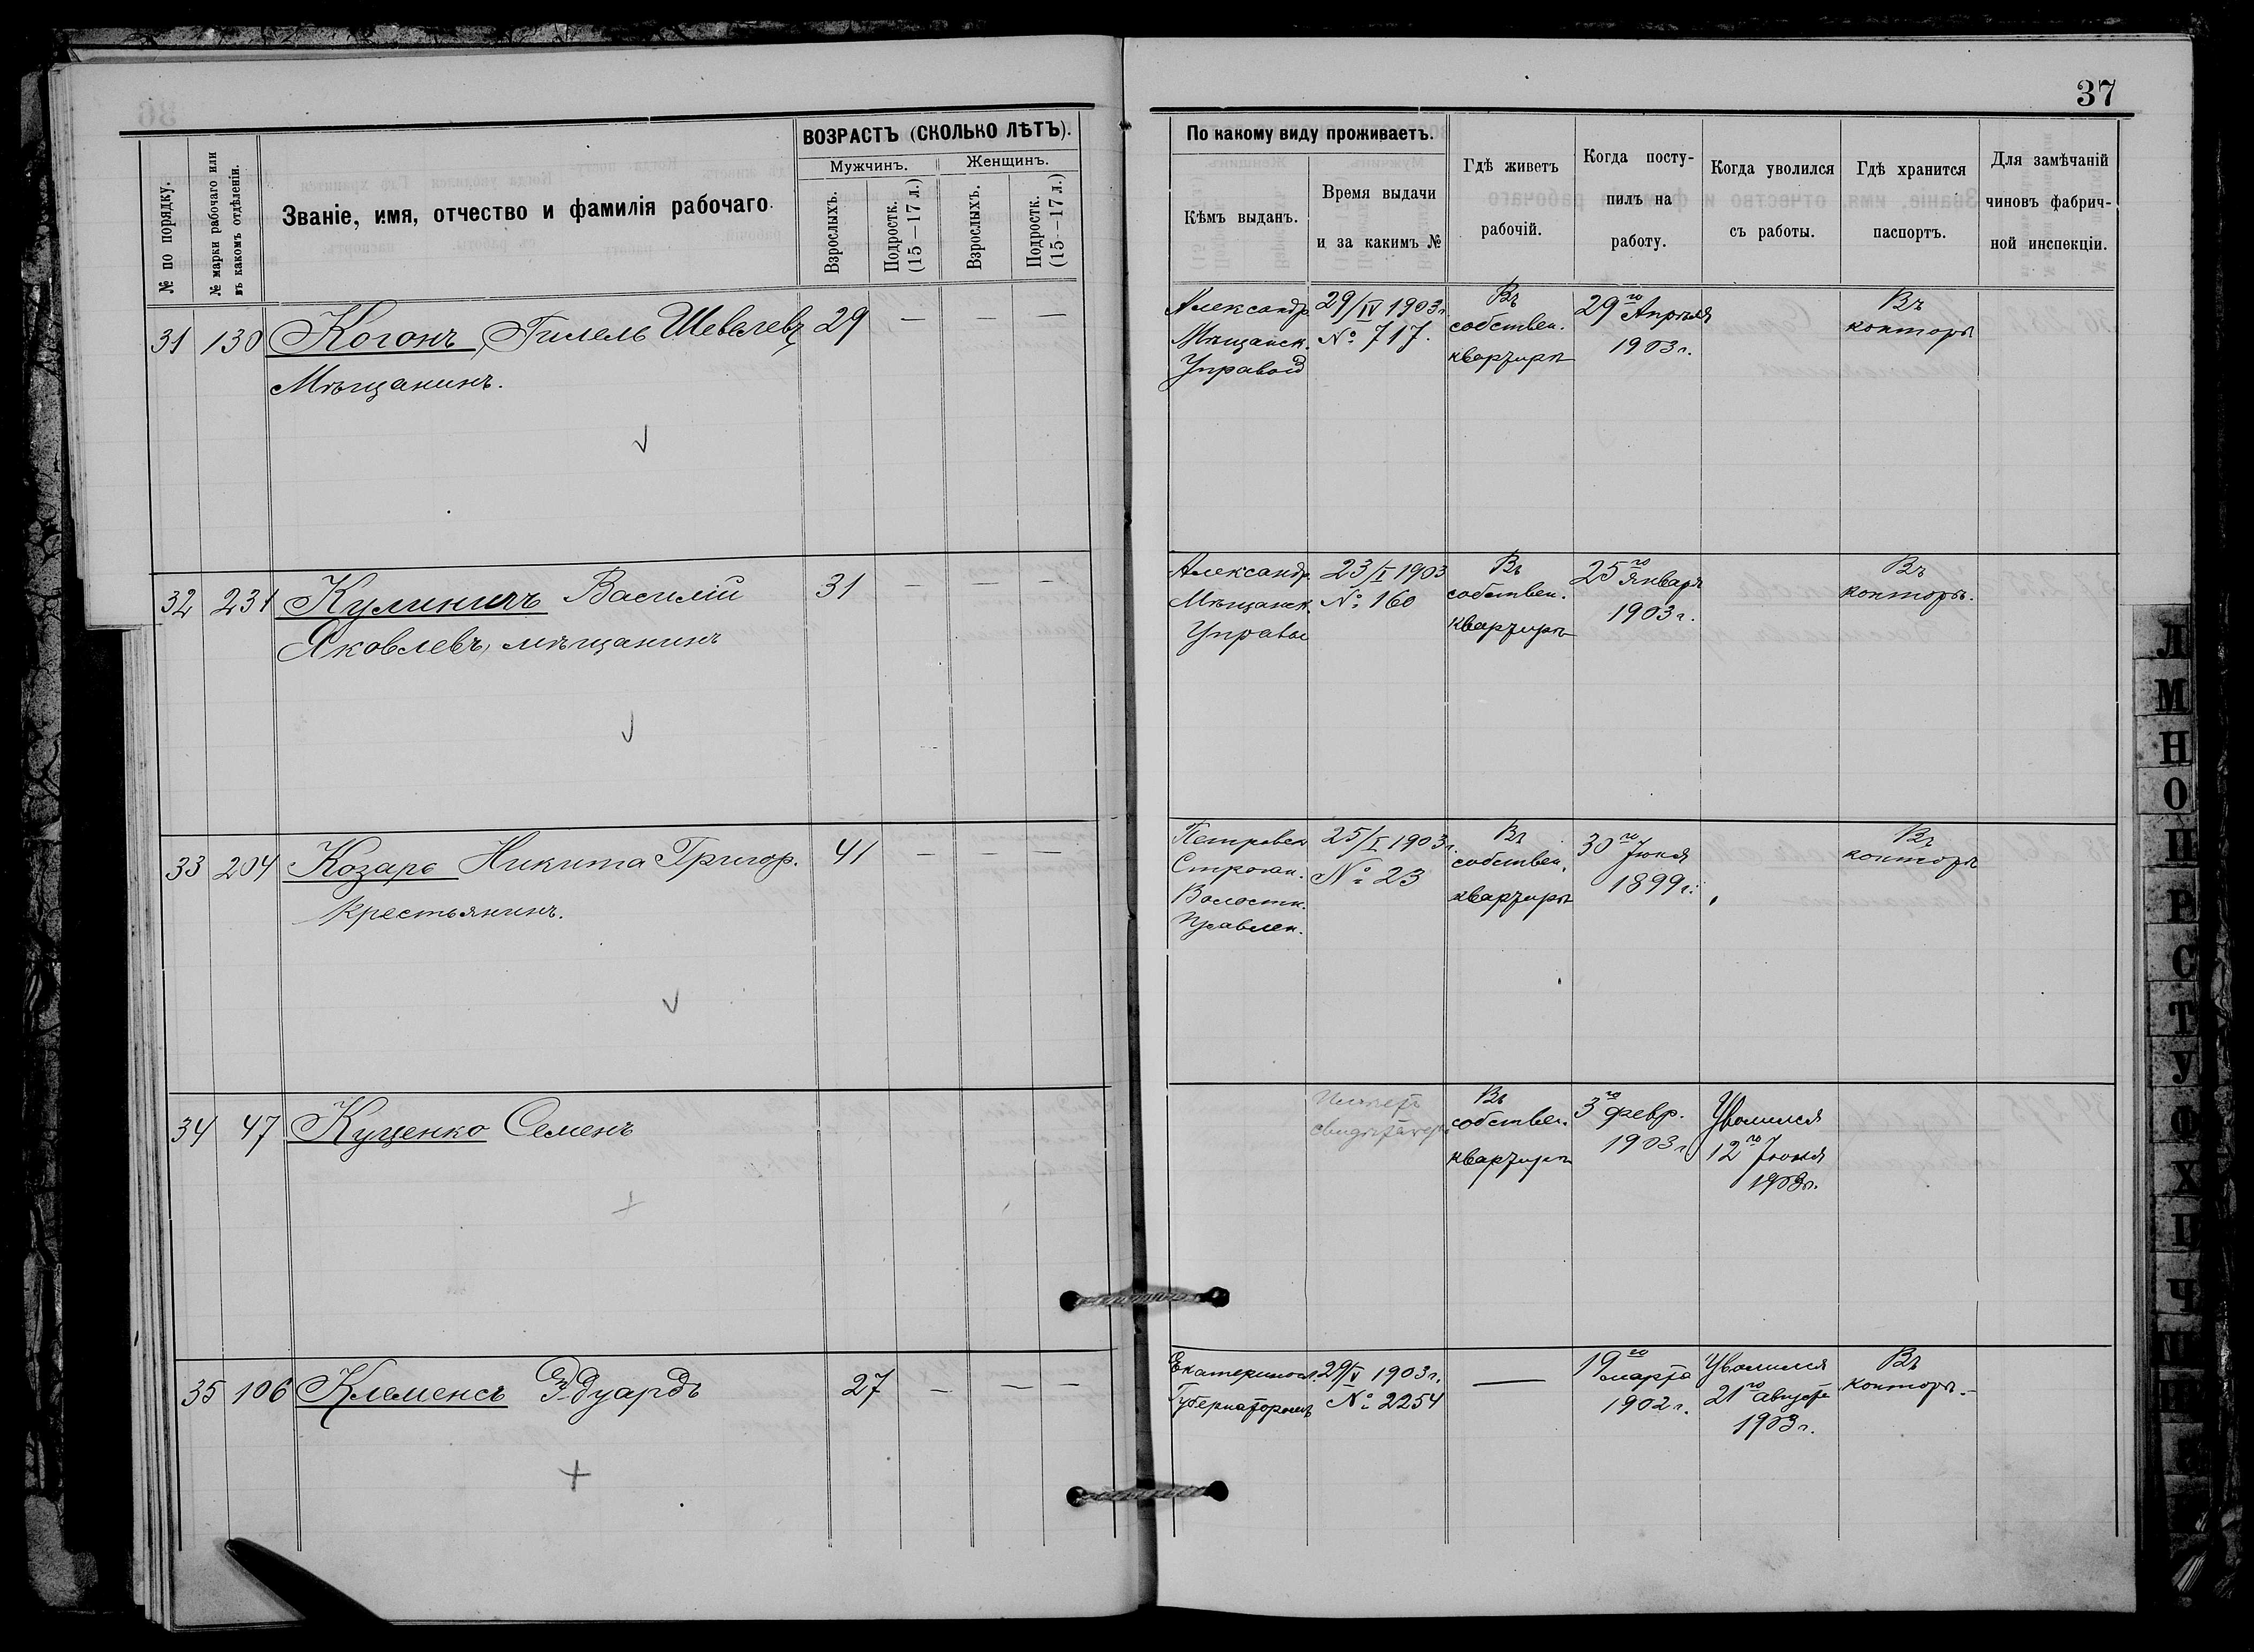 37
ВОЗРАСТЪ (СКОЛЬКО ЛѢТЪ).
Мужчинъ. Женщинъ.
№ по порядку.
№ марки рабочаго или
въ какомъ отдѣленіи.
Званіе, имя, отчество и фамилія рабочаго.
Взрослыхъ.
Подростк.
(15—17 л.)
Взрослыхъ.
Подростк.
(15—17 л.)
По какому виду проживаетъ.
Кѣмъ выданъ.
Время выдачи
и за какимъ №
Гдѣ живетъ
рабочій.
Когда посту-
пилъ на
работу.
Когда уволился
съ работы.
Гдѣ хранится
паспортъ.
Для замѣчаній
чиновъ фабрич-
ной инспекціи.
31 130 Когонъ, Гилель 29 — — —
Мѣщанинъ.
Александр.
Мѣщанск.
Управой
29/IV 1903 г.
№ 717.
Въ
собствен.
квартирѣ
29го Апрѣля
1903 г.
Въ
конторѣ
32 231 Кулиничъ Василій 31 — — —
Яковлевъ, мѣщанинъ
Александр.
Мѣщанск.
Управы
23/I 1903
№ 160
Въ
собствен.
квартирѣ
25го Январь
1903 г.
Въ
конторѣ.
33 204 Козарь Никита Григор. 41 — — —
Крестьянинъ.
Петровск
Волостн.
Правлен.
25/I 1903 г.
№ 23
Въ
собствен.
квартирѣ
30го Іюня
1899 г.
Въ
конторѣ
34 47 Куценко Семенъ
Въ
собствен.
квартирѣ
3го февр.
1903 г
Уволился
12го Іюня
1903 г.
35 106 Клеменсъ Эдуардъ 27 — — —
Екатериносл.
Губернаторомъ
29/V 1903 г.
№ 2254
—
19го марта
1902 г.
Уволился
21го августа
1903 г.
Въ
конторѣ.
Л
М
Н
О
П
Р
С
Т
У
Ф
Х
Ц
Ч